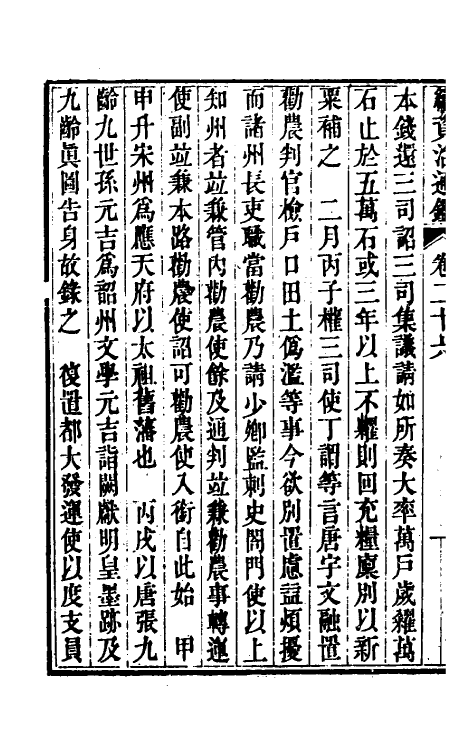 續資治通鑑 卷二十六
本錢還三司詔三司集議請如所奏大率萬戸歲糴萬
石止於五萬石或三年以上不糶則回充糧廩別以新
粟補之 二月丙子權三司使丁謂等言唐宇文融置
勸農判官檢戸口田土僞濫等事今欲別置慮益煩擾
而諸州長吏職當勸農乃請少卿監刺史閤門使以上
知州者竝兼管內勸農使餘及通判竝兼勸農事轉運
使副竝兼本路勸農使詔可勸農使入銜自此始 甲
申升宋州爲應天府以太祖舊藩也 丙戌以唐張九
齡九世孫元吉爲韶州文學元吉詣闕獻明皇墨跡及
九齡眞圖告身故錄之 復置都大發運使以度支員